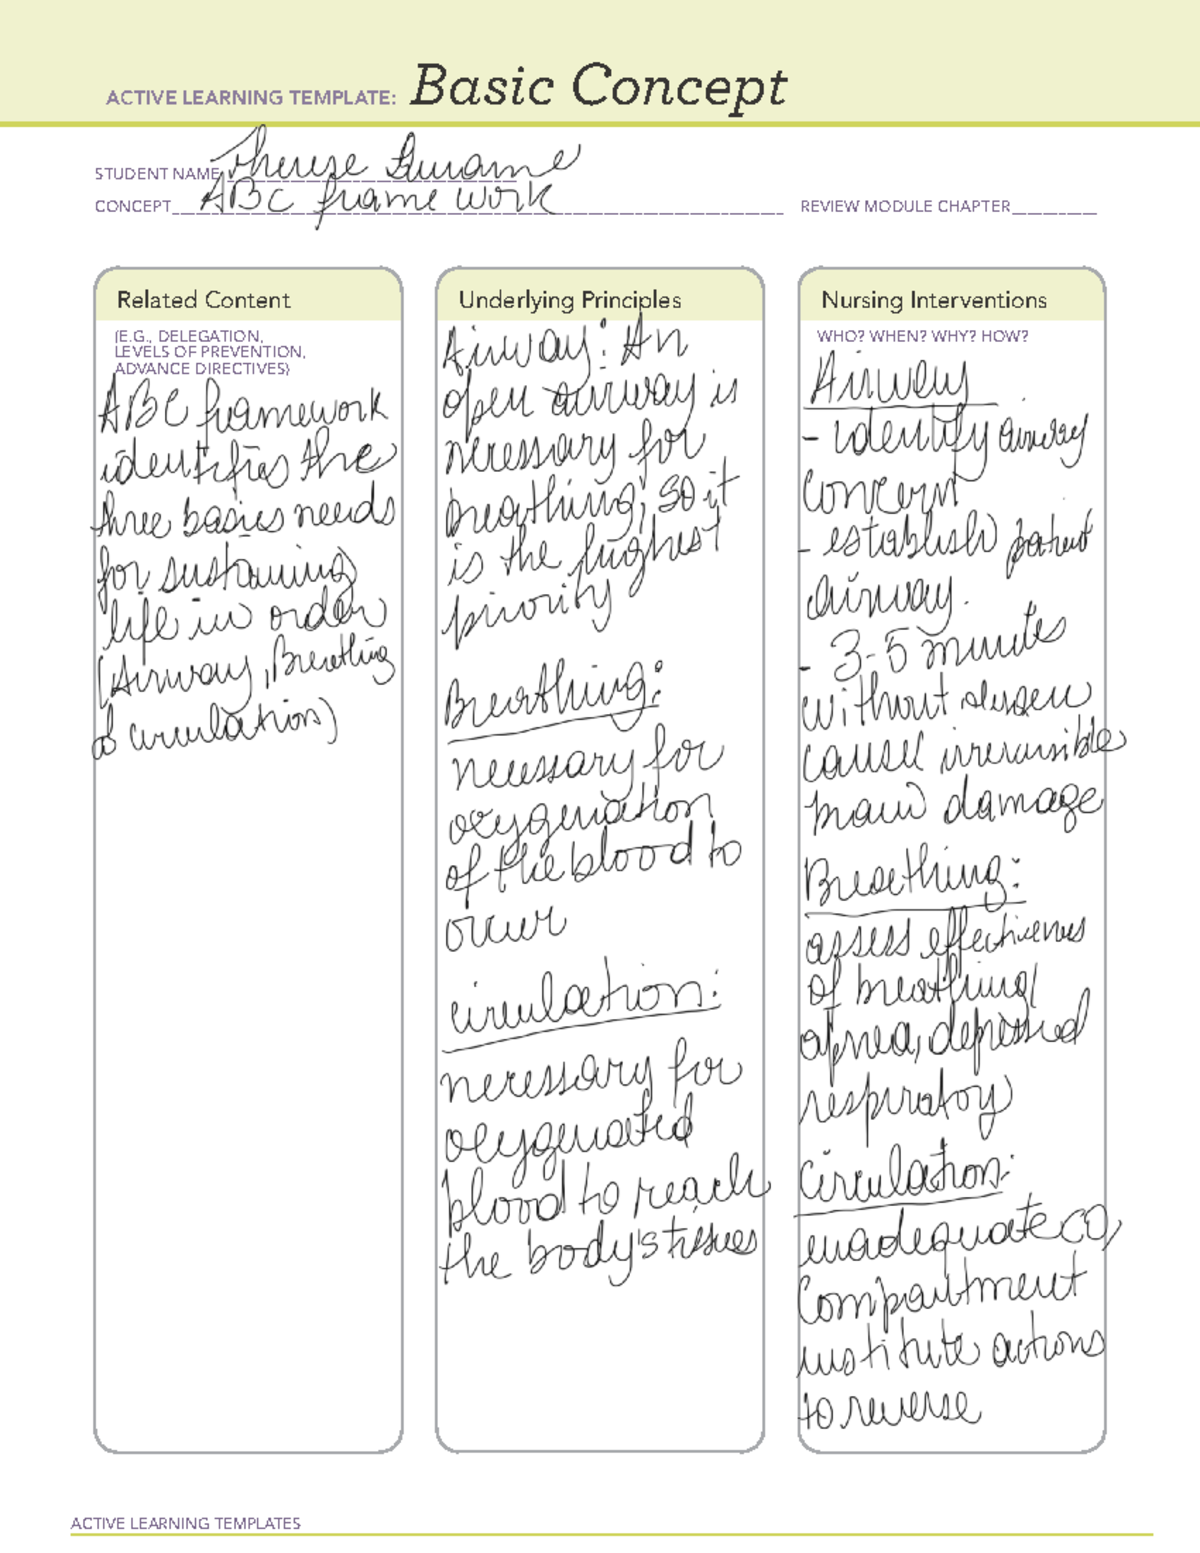 ACTIVE LEARNING TEMPLATE: Basic Concept
STUDENT NAME Therese
CONCEPT ABC framework
REVIEW MODULE CHAPTER
Related Content
(E.G., DELEGATION,
LEVELS OF PREVENTION,
ADVANCE DIRECTIVES)
ABC framework
identifies the
three basics needs
for sustaining
life in order
(Airway, Breathing
& circulation)
Underlying Principles
Airway: An
open airway is
necessary for
breathing, so it
is the highest
priority
Breathing:
necessary for
oxygenation
of the blood to
occur
circulation:
necessary for
oxygenated
blood to reach
the body's tissues
Nursing Interventions
WHO? WHEN? WHY? HOW?
Airway
- identify airway
concern
- establish patent
airway.
- 3-5 minutes
without oxygen
cause irreversible
brain damage
Breathing:
assess effectiveness
of breathing
apnea, depressed
respiratory
Circulation:
inadequate CO,
Compartment
institute actions
to reverse
ACTIVE LEARNING TEMPLATES